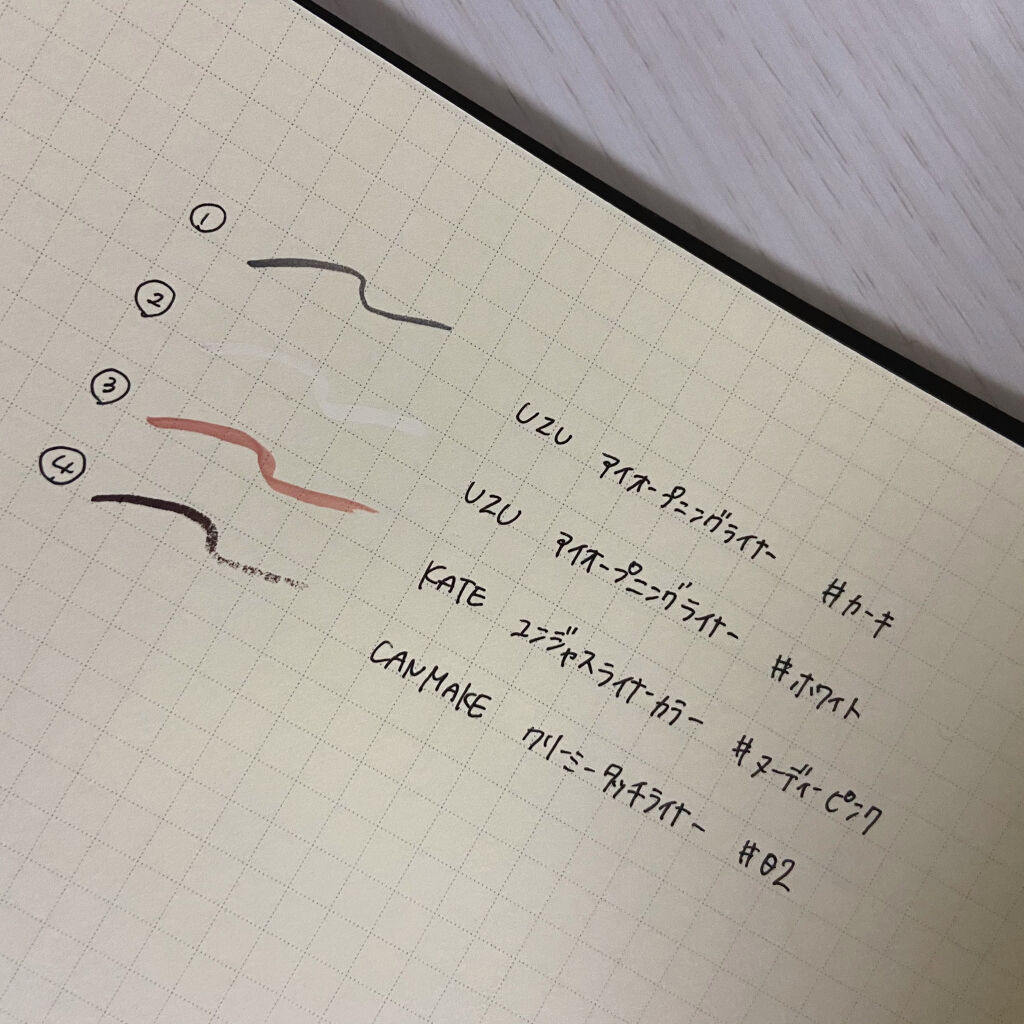 ①
②
③
④
UZU アイオープニングライナー #カーキ
UZU アイオープニングライナー #ホワイト
KATE ユンジャスライナーカラー #ヌーディーピンク
CANMAKE クリーミータッチライナー #02